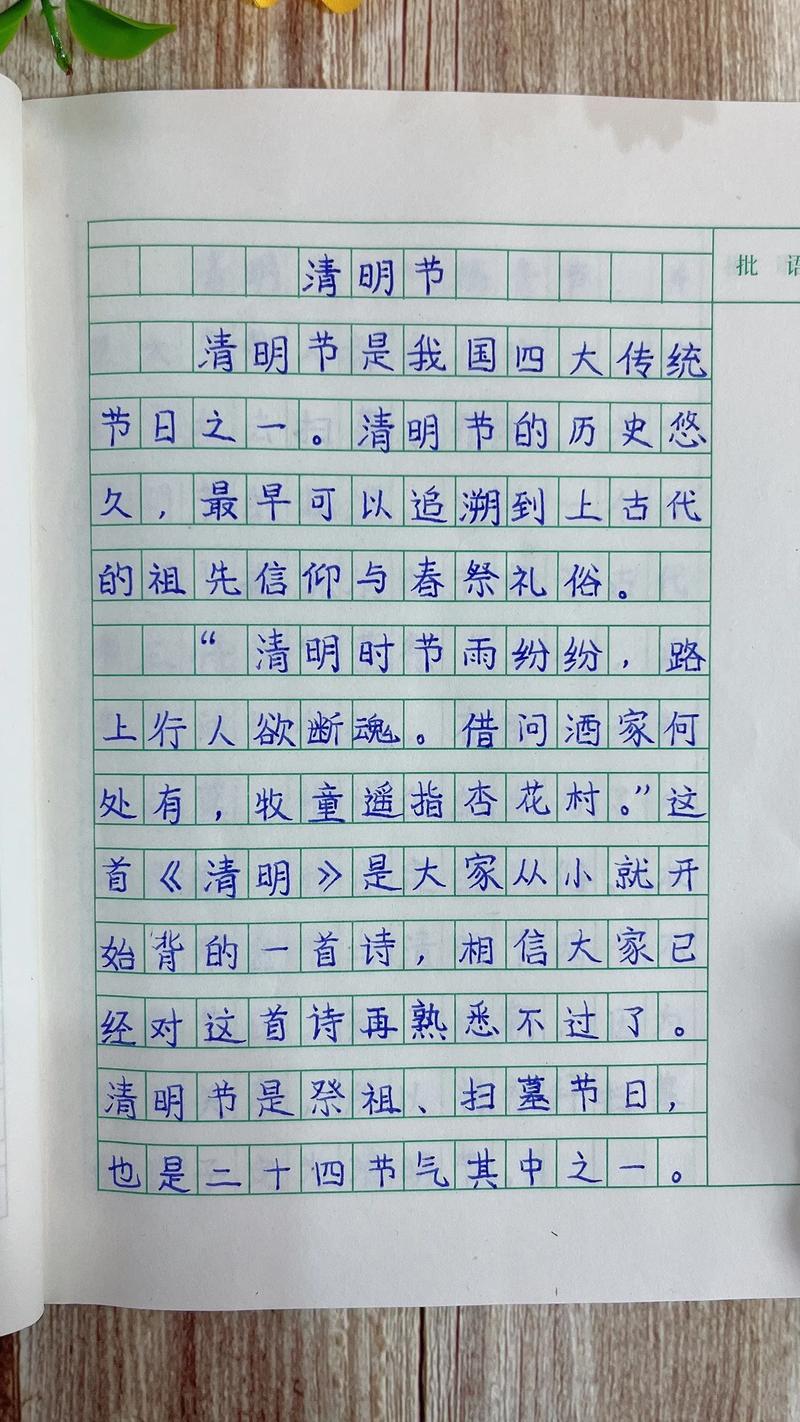 清明节
批语
清明节是我国四大传统
节日之一。清明节的历史悠
久，最早可以追溯到上古代
的祖先信仰与春祭礼俗。
“清明时节雨纷纷，路
上行人欲断魂。借问酒家何
处有，牧童遥指杏花村。”这
首《清明》是大家从小就开
始背的一首诗，相信大家已
经对这首诗再熟悉不过了。
清明节是祭祖、扫墓节日，
也是二十四节气其中之一。